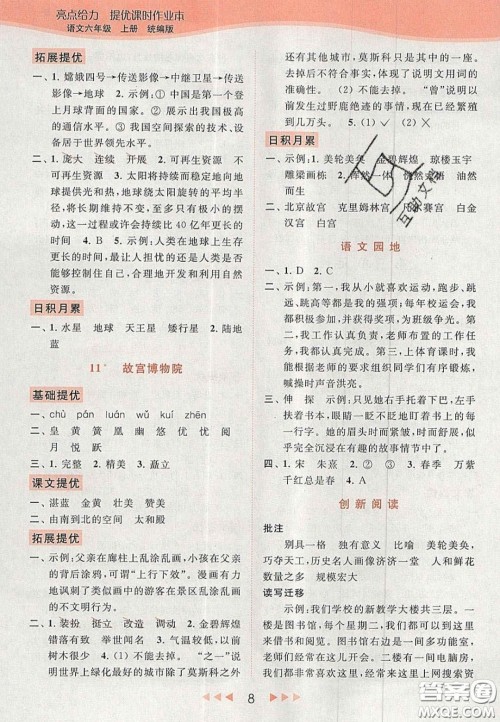 亮点给力 提优课时作业本
语文六年级 上册 统编版
拓展提优
一、1. 嫦娥四号→传送影像→中继卫星→传送影
像→地球 2. 示例:① 中国是第一个登
上月球背面的国家。② 展示出我国极高
的通信水平。③ 我国空间探索的技术、设
备居于世界领先水平。
二、1. 庞大 连续 开展 2. 可再生资源 不
可再生资源 3. 太阳将持续稳定地向地
球提供光和热,地球绕太阳旋转的平均半
径,将长期维持不变,至多只有微小的变
化,这种过程或许会持续比 40 亿年更长的
时间 4. B 5. 示例:人类在地球上生存
的最大问题不是其他,而是人类自己,这不
能不让人担忧,催人奋进,促人沉思。
日积月累
一、1. 水星 地球 天王星 矮行星 2. 陆地
蓝
11* 故宫博物院
基础提优
一、chù pán luán wǔ kuí zhēn
二、皇 黄 簧 凰 幽 悠 优 忧 阅
月 悦 跃
三、1. 完整 2. 精美 3. 矗立
课文提优
一、湛蓝 金黄 壮美 赞美
二、由南到北的空间 太和殿
拓展提优
一、示例:父亲在廊柱上乱涂乱画,小孩在父亲
的背后涂鸦,可谓“上行下效”。漫画有力
地讽刺了生活中的游客在景区乱涂乱画
的不文明现象。
二、1. 装扮 挺立 改造 2. 金碧辉煌
错落有致 举世闻名 3. 气温较低,以前
树木很少 4. (1) 不能去掉。“之一”说
明世界上绿化最好的城市除了莫斯科之外
还有其他城市,莫斯科只是其中的一个,这
个词不能去掉,它体现了说明文用词的
准确性。(2) 不能去掉。“曾”说明以前出
现过野鹿绝迹的事情,现在已经繁殖
到几万头。 5. (1)× (2)√
日积月累
一、示例:1. 美轮美奂 金碧辉煌 琼楼玉宇
雕梁画栋 2. 浑然一体
二、北京故宫 克里姆林宫 凡尔赛宫 白金
汉宫
语文园地
一、1. D 2. C
二、示例:第一,我从小就喜欢运动,跑步、跳
远、跳高等我都很擅长。每年校运会,我
总积极参加各项活动,为班级争光。第
二,我工作认真负责,老师布置的任务我总
能圆满完成。第三,上体育课时,我能
协助老师组织同学们有序锻炼,
喊口号时声音洪亮。
三、伸 探 示例:只见她右手托着下巴,左手
转着笔,时而凝视窗外,时而奋笔疾
书。她的眉头时而紧皱,时而舒展,似乎
完全沉浸在自己的世界里。
四、1. 宋 朱熹 2. ② ① ③ 3. 春季 万紫
千红总是春 4. A
创新阅读
批注
别具一格 独有意义 比喻 美轮美奂,
巧夺天工,历史名人画像济济一堂 人和鲜花
数量之多 规模宏大
读写迁移
示例:我们学校的新教学大楼共三层。一
楼有图书馆和阅览室。我们可以在这里
借书和阅览。图书馆右边是一间办公室,
老师们经常在里面备课。二楼有一间电脑
室,同学们可以在这里上网搜索资
8